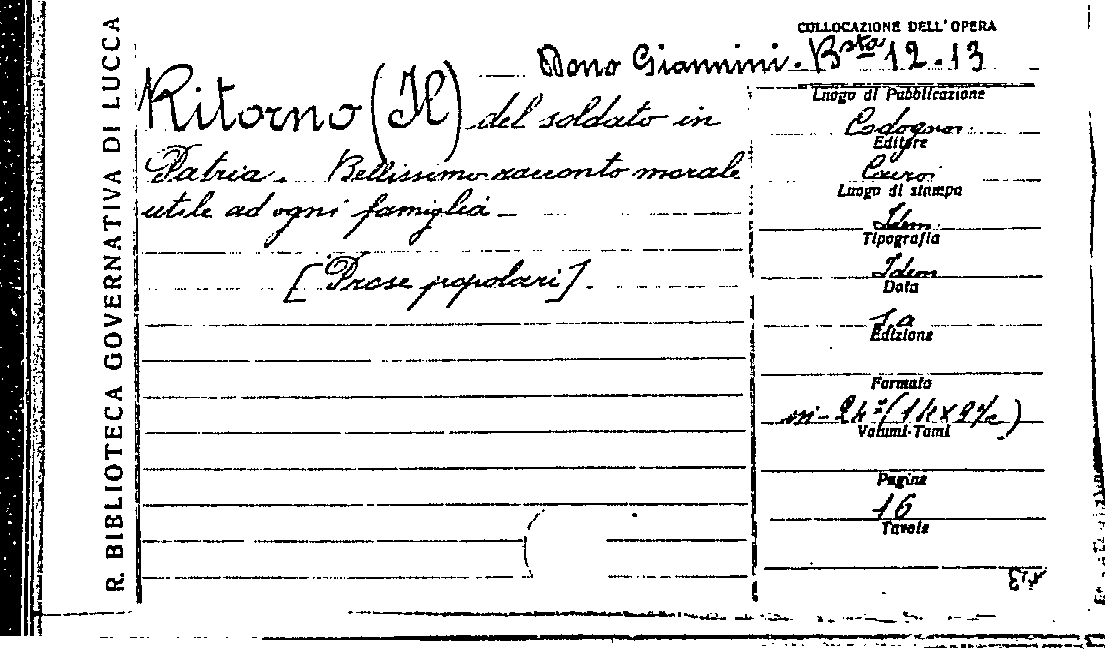 R. BIBLIOTECA GOVERNATIVA DI LUCCA
COLLOCAZIONE DELL'OPERA
Dono Giannini. Bsta 12.13
Ritorno (Il) del soldato in
Patria. Bellissimo racconto morale
utile ad ogni famiglia
[Prose popolari].
Luogo di Pubblicazione
Codogno
Editore
Cairo
Luogo di stampa
Idem
Tipografia
Idem
Data
Edizione
Formato
in-24º
Volumi-Tomi
Pagine
16
Tavole